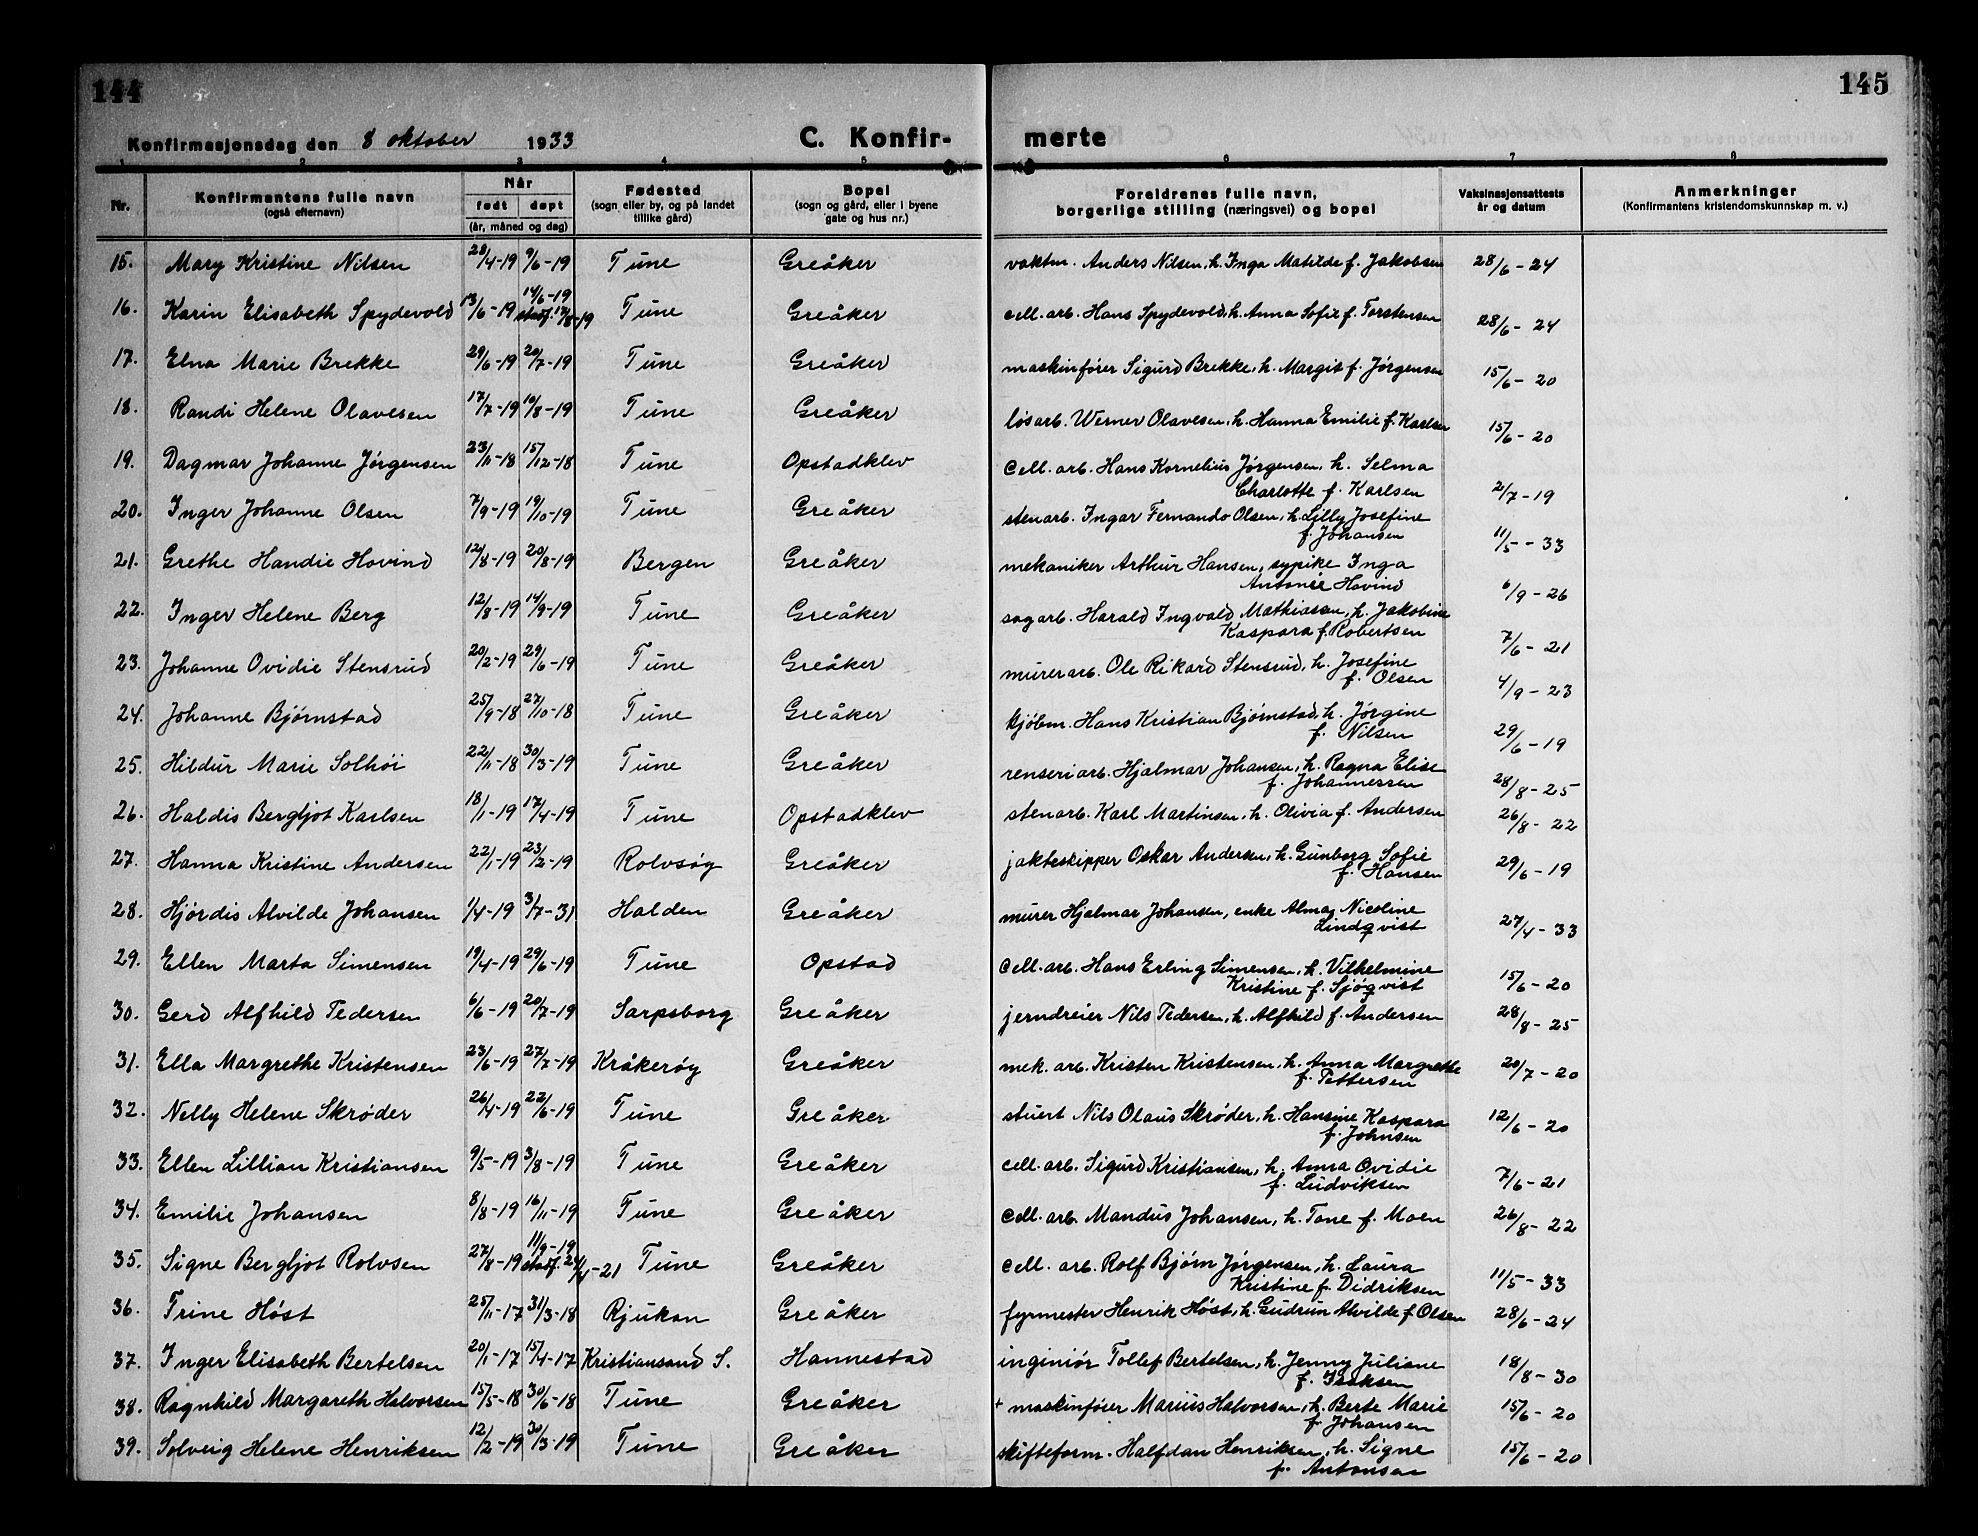 144
145
Konfirmasjonsdag den 8 oktober 1933 C. Konfir- merte
1 2 3 4 5 6 7 8
Nr.
Konfirmantens fulle navn
(også efternavn)
Når
født døpt
(år, måned og dag)
Fødested
(sogn eller by, og på landet
tillike gård)
Bopel
(sogn og gård, eller i byene
gate og hus nr.)
Foreldrenes fulle navn,
borgerlige stilling (næringsvei) og bopel
Vaksinasjonsattests
år og datum
Anmerkninger
(Konfirmantens kristendomskunnskap m. v.)
15. Mary Kristine Nilsen 28/4-19 9/6-19 Tune Greåker vaktm. Anders Nilsen, h. Inga Matilde f. Jakobsen 28/6-24
16. Karin Elisabeth Spydevold 13/6-19 14/6-19 stadf. 17/8-19 Tune Greåker cell. arb. Hans Spydevold, h. Anna Sofie f. Torstensen 28/6-24
17. Elna Marie Brekke 29/6-19 20/7-19 Tune Greåker maskinfører Sigurd Brekke, h. Margit f. Jørgensen 15/6-20
18. Randi Helene Olavesen 17/7-19 10/8-19 Tune Greåker løsarb. Werner Olavesen, h. Hanna Emilie f. Karlsen 15/6-20
19. Dagmar Johanne Jørgensen 23/11-18 15/12-18 Tune Opstadklev Cell. arb. Hans Kornelius Jørgensen, h. Selma
Charlotte f. Karlsen 2/7-19
20. Inger Johanne Olsen 7/9-19 19/10-19 Tune Greåker stenarb. Ingar Fernando Olsen, h. Lilly Josefine
f. Johansen 11/5-33
21. Grethe Handie Hovind 12/8-19 20/8-19 Bergen Greåker mekaniker Arthur Hansen, sypike Inga
Antonie Hovind 6/9-26
22. Inger Helene Berg 12/8-19 14/9-19 Tune Greåker sagarb. Harald Ingvald Mathiassen, h. Jakobine
Kaspara f. Robertsen 7/6-21
23. Johanne Ovidie Stensrud 20/2-19 29/6-19 Tune Greåker murerarb. Ole Rikard Stensrud, h. Josefine
f. Olsen 4/9-23
24. Johanne Bjørnstad 25/9-18 27/10-18 Tune Greåker kjøbm. Hans Kristian Bjørnstad, h. Jørgine
f. Nilsen 29/6-19
25. Hildur Marie Solhøi 22/11-18 30/3-19 Tune Greåker renseriarb. Hjalmar Johansen, h. Ragna Elise
f. Johannessen 28/8-25
26. Haldis Bergljot Karlsen 18/1-19 17/4-19 Tune Opstadklev stenarb. Karl Martinsen, h. Olivia f. Andersen 26/8-22
27. Hanna Kristine Andersen 22/1-19 23/2-19 Rolvsøy Greåker jakteskipper Oskar Andersen, h. Gunborg Sofie
f. Hansen 29/6-19
28. Hjørdis Alvilde Johansen 1/4-19 3/7-31 Halden Greåker murer Hjalmar Johansen, enke Alma Nicoline
Lindqvist 27/4-33
29. Ellen Marta Simensen 19/4-19 29/6-19 Tune Opstad Cell. arb. Hans Erling Simensen, h. Vilhelmine
Kristine f. Sjøqvist 15/6-20
30. Gerd Alfhild Pedersen 6/6-19 20/7-19 Sarpsborg Greåker jerndreier Nils Pedersen, h. Alfhild f. Andersen 28/8-25
31. Ella Margrethe Kristensen 23/6-19 27/7-19 Kråkerøy Greåker mek. arb. Kristen Kristensen, h. Anna Margrethe
f. Pettersen 20/7-20
32. Nelly Helene Skrøder 26/4-19 22/6-19 Tune Greåker stuert Nils Olaus Skrøder, h. Hansine Kaspara
f. Johnsen 12/6-20
33. Ellen Lillian Kristiansen 9/5-19 3/8-19 Tune Greåker cell. arb. Sigurd Kristiansen, h. Anna Ovidie
f. Ludviksen 7/6-21
34. Emilie Johansen 8/8-19 16/11-19 Tune Greåker Cell. arb. Mandus Johansen, h. Tone f. Moen 26/8-22
35. Signe Bergljot Rolvsen 27/8-19 11/9-19 stadf. 24/4-21 Tune Greåker cell. arb. Rolf Bjørn Jørgensen, h. Laura
Kristine f. Didriksen 11/5-33
36. Trine Høst 25/11-17 31/3-18 Rjukan Greåker fyrmester Henrik Høst, h. Gudrun Alvilde f. Olsen 28/6-24
37. Inger Elisabeth Bertelsen 20/1-17 15/4-17 Kristiansand S. Hannestad inginiør Tollef Bertelsen, h. Jenny Juliane
f. Isaksen 18/8-30
38. Ragnhild Margareth Halvorsen 15/5-18 30/6-18 Tune Greåker + maskinfører Marius Halvorsen, h. Berte Marie
f. Johansen 15/6-20
39. Solveig Helene Henriksen 12/2-19 30/3-19 Tune Greåker skifteform. Halfdan Henriksen, h. Signe
f. Antonsen 15/6-20